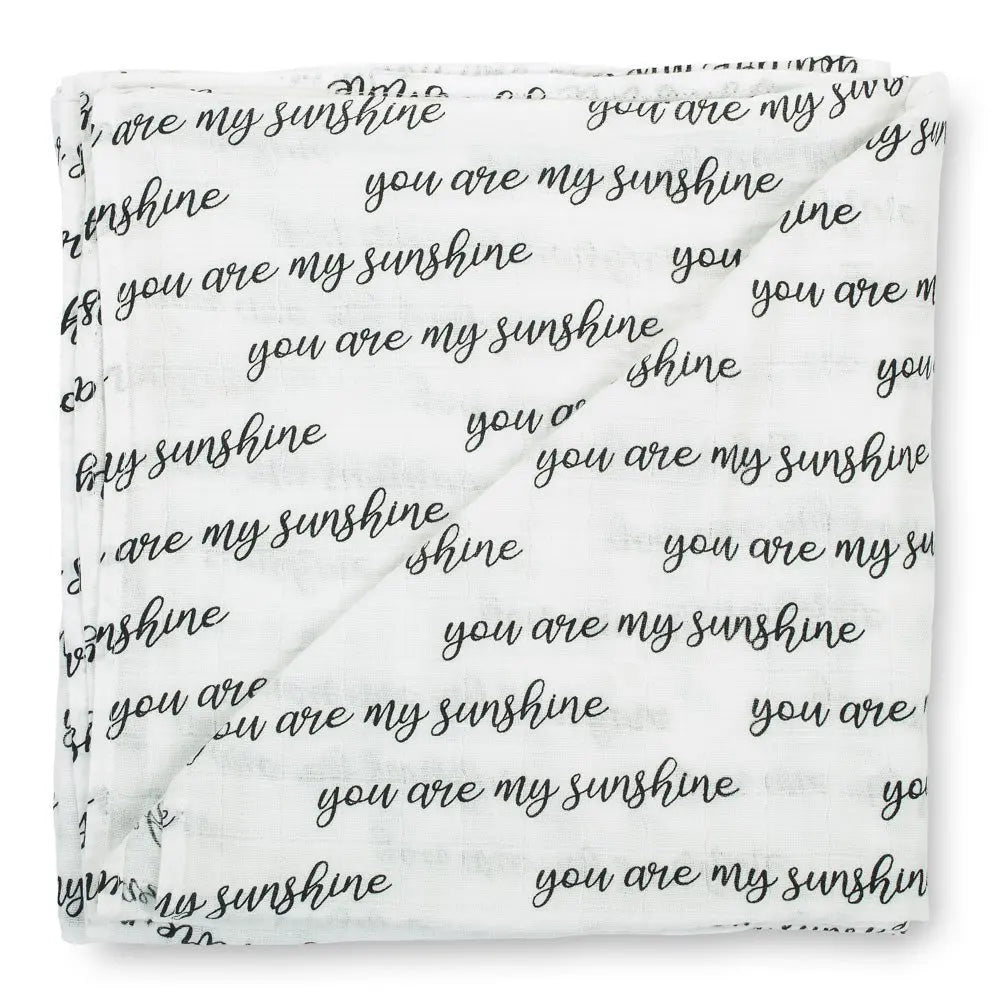 are my sunshine you are my
nshine you are my sunshine
ine
you are my sunshine you
you are
you are my sunshine
shine you
you
sunshine you are my sunshine
are my sunshine
shine you are my su
nshine you are my sunshine
you are
ou are my sunshine you are
you are my sunshine yo
my sunshine you are my sunshin